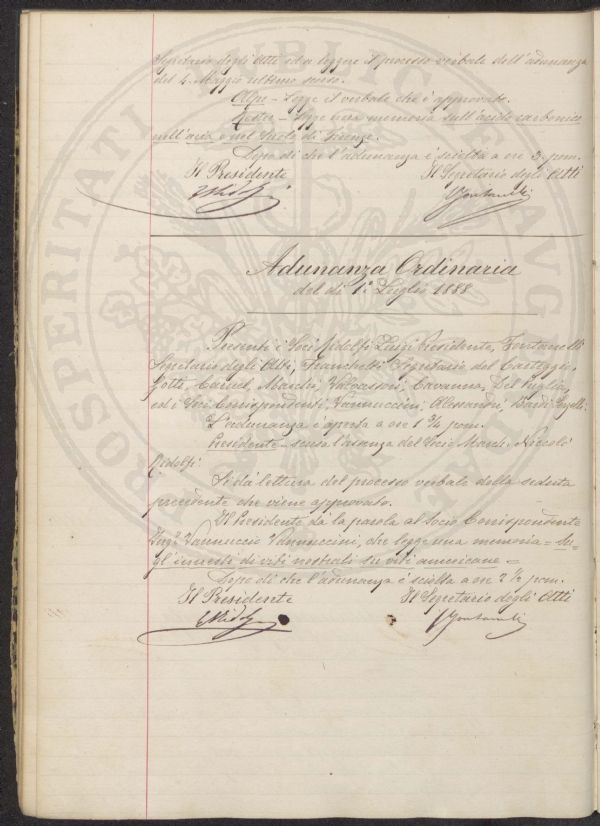 Segretario degli Atti ed a leggere il processo verbale dell'adunanza
del 4. Maggio ultimo scorso.
Alpe - Legge il verbale che è approvato.
- Legge una memoria sull'acido carbonico
nell'aria e nel Suolo di Firenze.
Dopo di che l'adunanza è sciolta a ore 3. pom.
Il Presidente Il Segretario degli Atti
Adunanza Ordinaria
del dì 1.° Luglio 1888
Presenti i Soci Ridolfi Luigi Presidente, Fontanelli
Segretario degli Atti, Franchetti Segretario del Carteggio,
Caruel, Marchi, Valvassori, Cavanna, Del Puglia,
ed i Soci Corrispondenti, Vannuccini, Alessandri,
L'adunanza è aperta a ore 1 3/4 pom.
Presidente - scusa l'assenza del Socio March. Niccolò
Ridolfi.
Si dà lettura del processo verbale della seduta
precedente che viene approvato.
Il Presidente da la parola al Socio Corrispondente
Ing.r Vannuccio Vannuccini, che legge una memoria - Su-
gl'innesti di viti nostrali su viti americane =
Dopo di che l'adunanza è sciolta a ore 2 1/2 pom.
Il Presidente Il Segretario degli Atti
PROSPERITATI PUBLICAE AUGENDAE